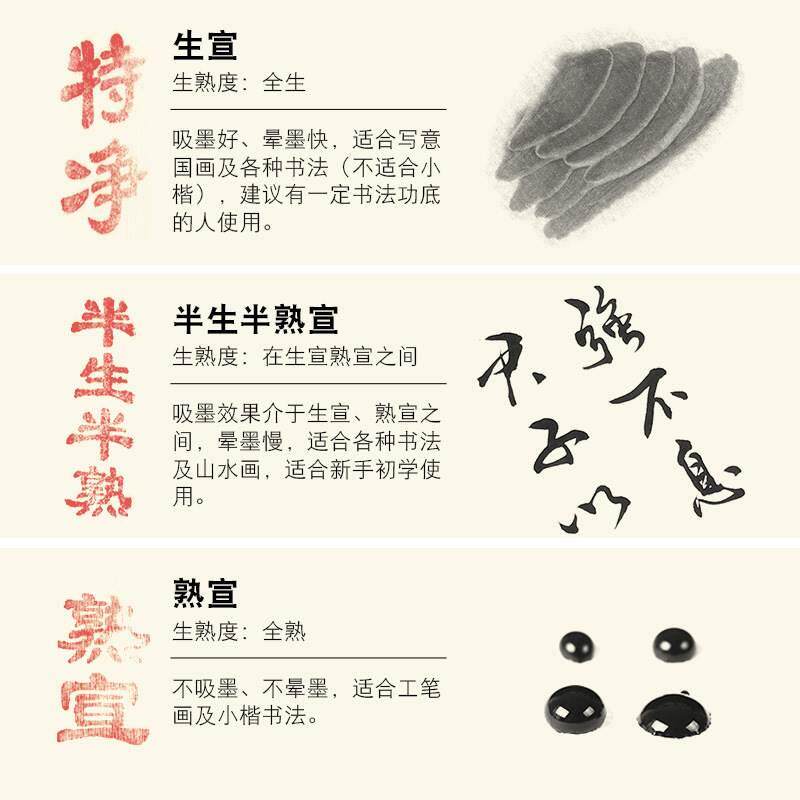 特净
生宣
生熟度：全生
吸墨好、晕墨快，适合写意
国画及各种书法（不适合小
楷），建议有一定书法功底
的人使用。
半生半熟
半生半熟宣
生熟度：在生宣熟宣之间
吸墨效果介于生宣、熟宣之
间，晕墨慢，适合各种书法
及山水画，适合新手初学使
用。
君子以
强不息
熟宣
熟宣
生熟度：全熟
不吸墨、不晕墨，适合工笔
画及小楷书法。